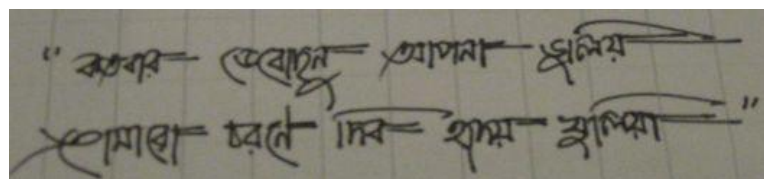 "কতবার ভেবেছিনু আপনা ভুলিয়া
তোমারো চরণে দিব হৃদয় খুলিয়া"